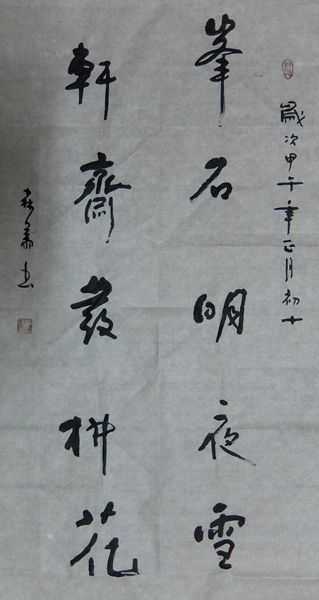 歲次甲午年正月初十
峯石明夜雪
軒齋發花
书